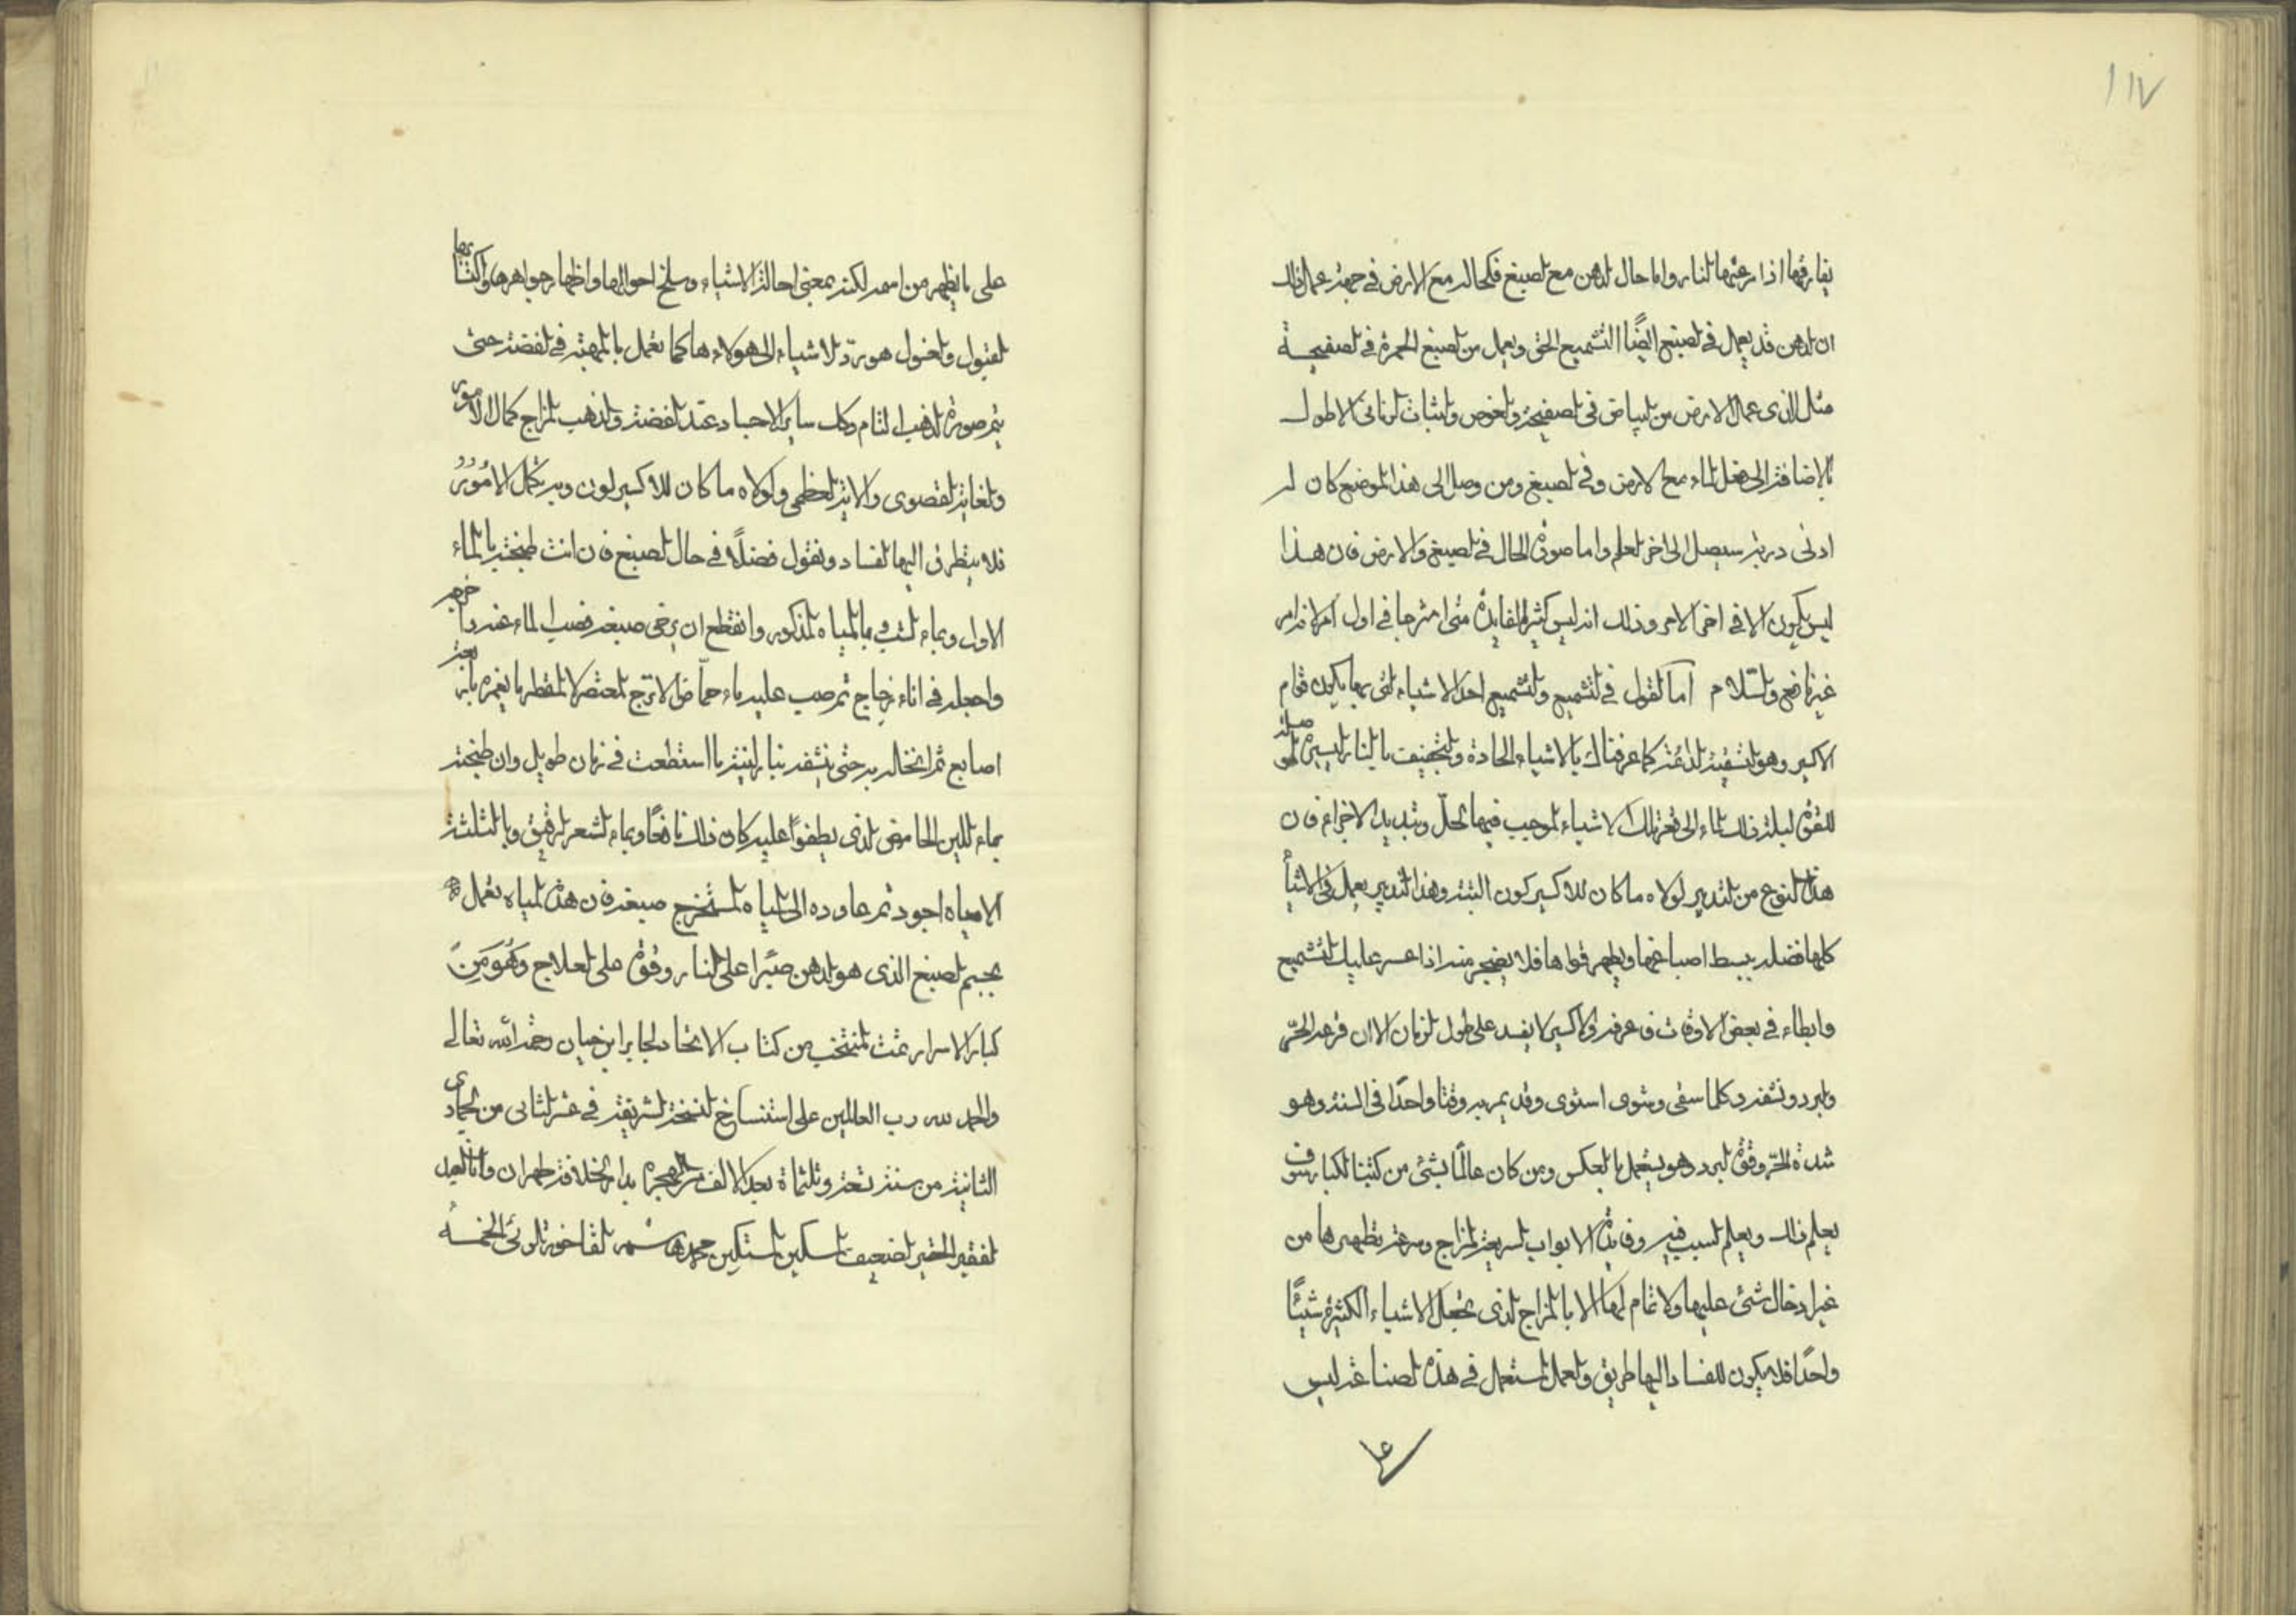 ١١٧
يفارقها اذا رعتها لنار واما حال لدهن مع لصبغ فكحاله مع الارض في جهة عمل ذلك
ان لدهن قد يعمل في لصبغ ايضًا التشميع الحق ويعمل من لصبغ الحمرة في لصفيحة
مثل الذي عمل الارض من لبياض في لصفيحة ولغوص ولثبات لزماني الاطول
بالاضافة الى فعل لماء مع لارض وفي لصبغ ومن وصل الى هذا لموضع كان له
ادنى دربة سيصل الى اخر لعلم واما صورة الحال في لصبغ والارض فان هذا
ليس يكون الا في اخر الامر وذلك انه ليس كثير لفايدة متى امتزجا في اول امر لانه امر
غير نافع ولسلام اما لقول في لتشميع ولتشميع احد الاشياء لتي بها يكون قوام
الاكسير وهو لتسقية لدائمة كما عرفناك بالاشياء الحادة ولتجفيف بالنار ليسيرة
للقوة ليلة ذلك لماء الى قعر تلك الاشياء لموجب فيها لحل وتبديد الاجزاء فان
هذا لنوع من لتدبير لولاه ما كان للاكسير كون البتة وهذا لتدبير يعمل في الاشيأ
كلها فضله يبسط اصباغها ويظهر قواها فلا يضجر منه اذا عسر عليك لتشميع
وابطاء في بعض الاوقات فاعرفه والاكسير لا يفسد على طول لزمان الا ان قرعه الحر
ولبرد ونشفه وكلما سقى وشوى استوى وقد يمر به وقتا واحدًا في السنة وهو
شدة الحر وقوة لبرد وهو يستعمل بالعكس ومن كان عالمًا بشئ من كتبنا لكبار سوف
يعلم ذلك ويعلم لسبب فيه وفايدة الابواب لسريعة لمزاج وسرعة تطهيرها من
غير ادخال شئ عليها ولا تمام لها الا بالمزاج لذى يجعل الاشياء الكثيرة شيئًا
واحدًا فلا يكون للفساد اليها طريق ولعمل لمستعمل في هذه لصناعة ليس
على ما يظهر من اسمه لكنه بمعنى احالة الاشياء وسلخ احوالها واظهار جواهرها واكتسابها
لقبول ولعنول هو برد لاشياء الى هولاء ها كما تعمل بالمهبة في لفضة حتى
يتم صورة لذهب لتام وكل ساير الاجساد عند لفضة ولذهب لمزاج كمال الامور
ولغاية لقصوى والاية لعظمى ولولاه ما كان للاكسير لون وبه تكمل الامور
فلا يتطرق اليها لفساد ونقول فضلًا في حال لصبغ فان انت طبخته بالماء
الاول وبماء لشب وبالمياه لمذكور وانقطع ان يرخى صبغه فصب الماء عنه
واجعله في اناء زجاج ثم صب عليه ماء حماض الاترج لمعتصر لا لمقطر ما يغمره باربعة
اصابع ثم انخاله به حتى ينشفه بنار لينة ما استطعت في زمان طويل وان طبخته
بماء للبن الحامض لذى يطفوا عليه كان ذلك نافعًا وبماء لشعر لرقيق وبالثلثة
الامياه اجود ثم عاوده الى لمياه لمستخرج صبغه فان هذه لمياه تعمل
بجسم لصبغ الذي هو لدهن صبرا على لنار وقوة على لعلاج وَهُوَ مِنَ
كبار الاسرار تمت لمنتخب من كتاب الاتحاد لجابر ابن حيان رحمة الله تعالى
والحمد لله رب العالمين على استنساخ لنسخة لشريفة في عشر لثاني من لجمادى
الثانية من سنة تسعة وثلثماة بعد الالف من لهجرة بدار لخلافة طهران وانا لعبد
لفقير الحقير لضعيف لمسكين لمستكين محمد هاشم